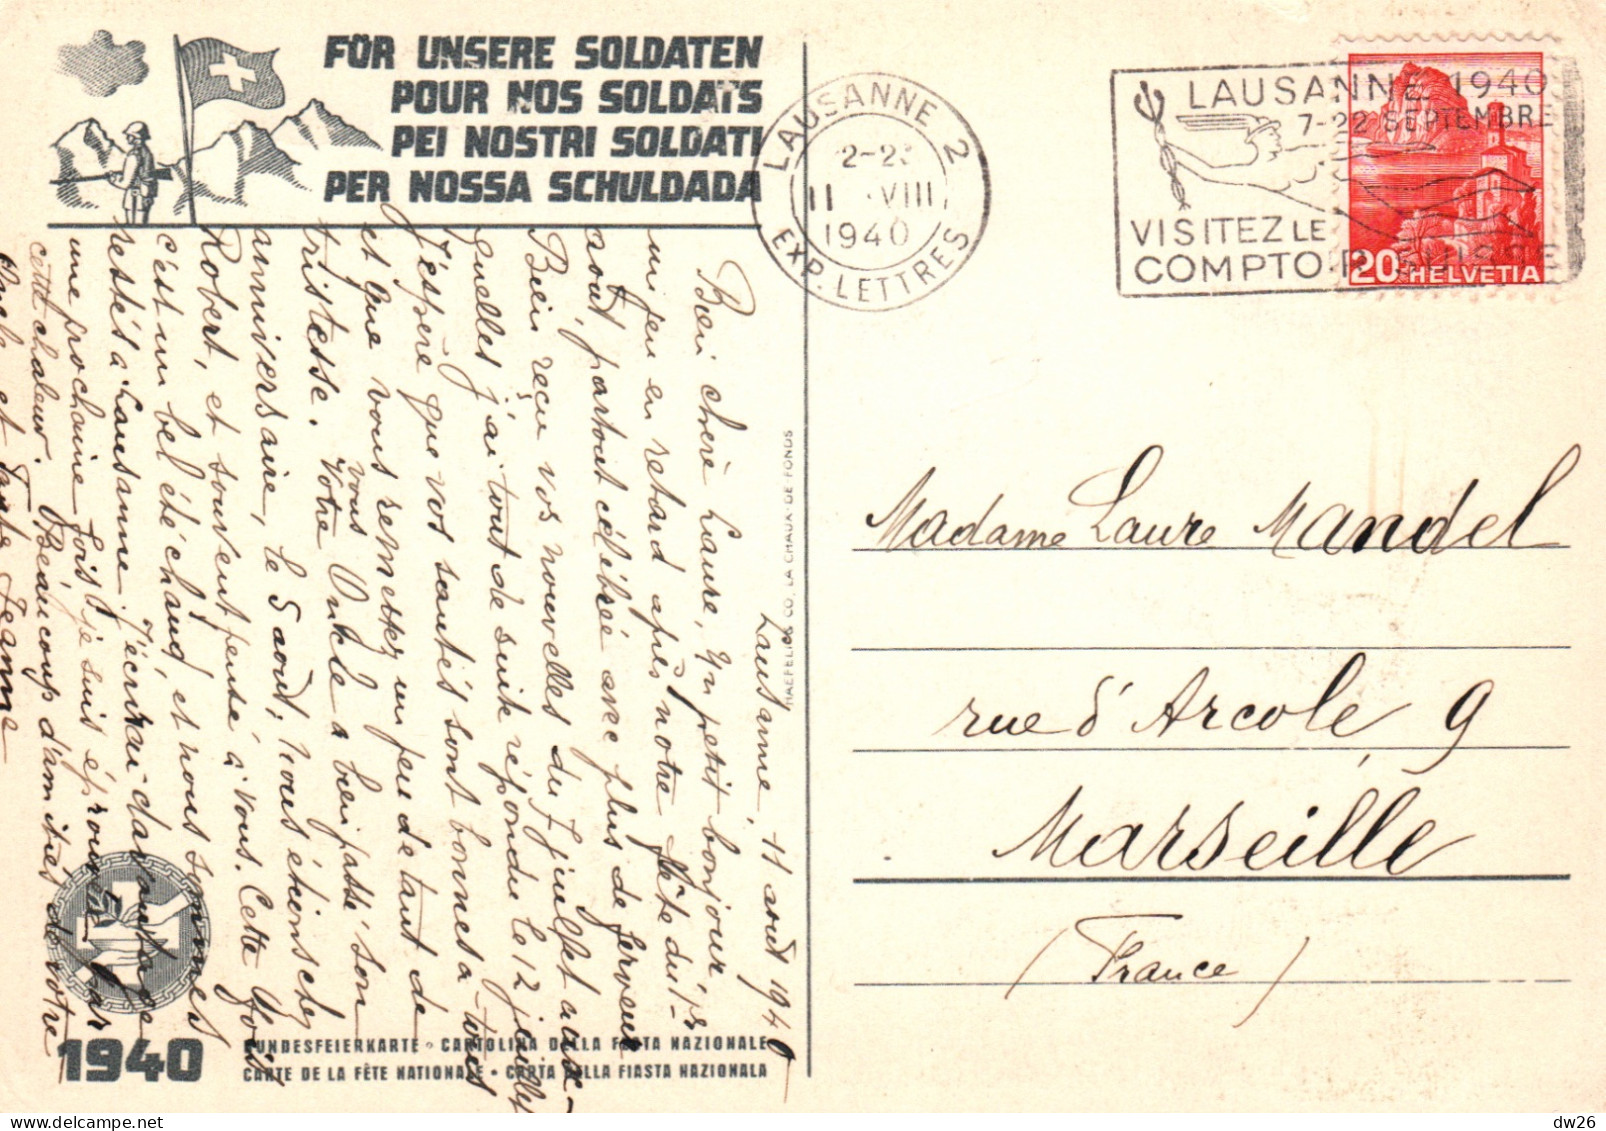 FÖR UNSERE SOLDATEN
POUR NOS SOLDATS
PEI NOSTRI SOLDATI
PER NOSSA SCHULDADA
LAUSANNE 2
11 VIII
1940
EXP. LETTRES
LAUSANNE 1940
7-22 SEPTEMBRE
VISITEZ LE
COMPTOIR SUISSE
20 HELVETIA
Lausanne, 11 août 1940
Bien chère Laure, un petit bonjour,
un peu en retard après notre fête du 1er
août, partout célébrée avec plus de ferveur
Bien reçu vos nouvelles du 7 juillet aux-
quelles j'ai tout de suite répondu le 12 juillet
J'espère que vos santés sont bonnes à tous
et que vous vous remettez un peu de tant de
tristesse. Votre Oncle a bien fêté son
anniversaire, le 5 août, nous étions chez
Robert, et souvent pensé à vous. Cette fois
c'est un bel été chaud, et nous sommes
restés à Lausanne J'écrirai davantage
une prochaine fois je suis éprouvée par
cette chaleur. Beaucoup d'amitiés de votre
Oncle et Tante Jeanne
HAEFELI & CO, LA CHAUX-DE-FONDS
Madame Laure Mandel
rue d'Arcole 9
Marseille
(France)
1940
BUNDESFEIERKARTE · CARTOLINA DELLA FESTA NAZIONALE
CARTE DE LA FÊTE NATIONALE · CARTA DALLA FIASTA NAZIONALA
dw26